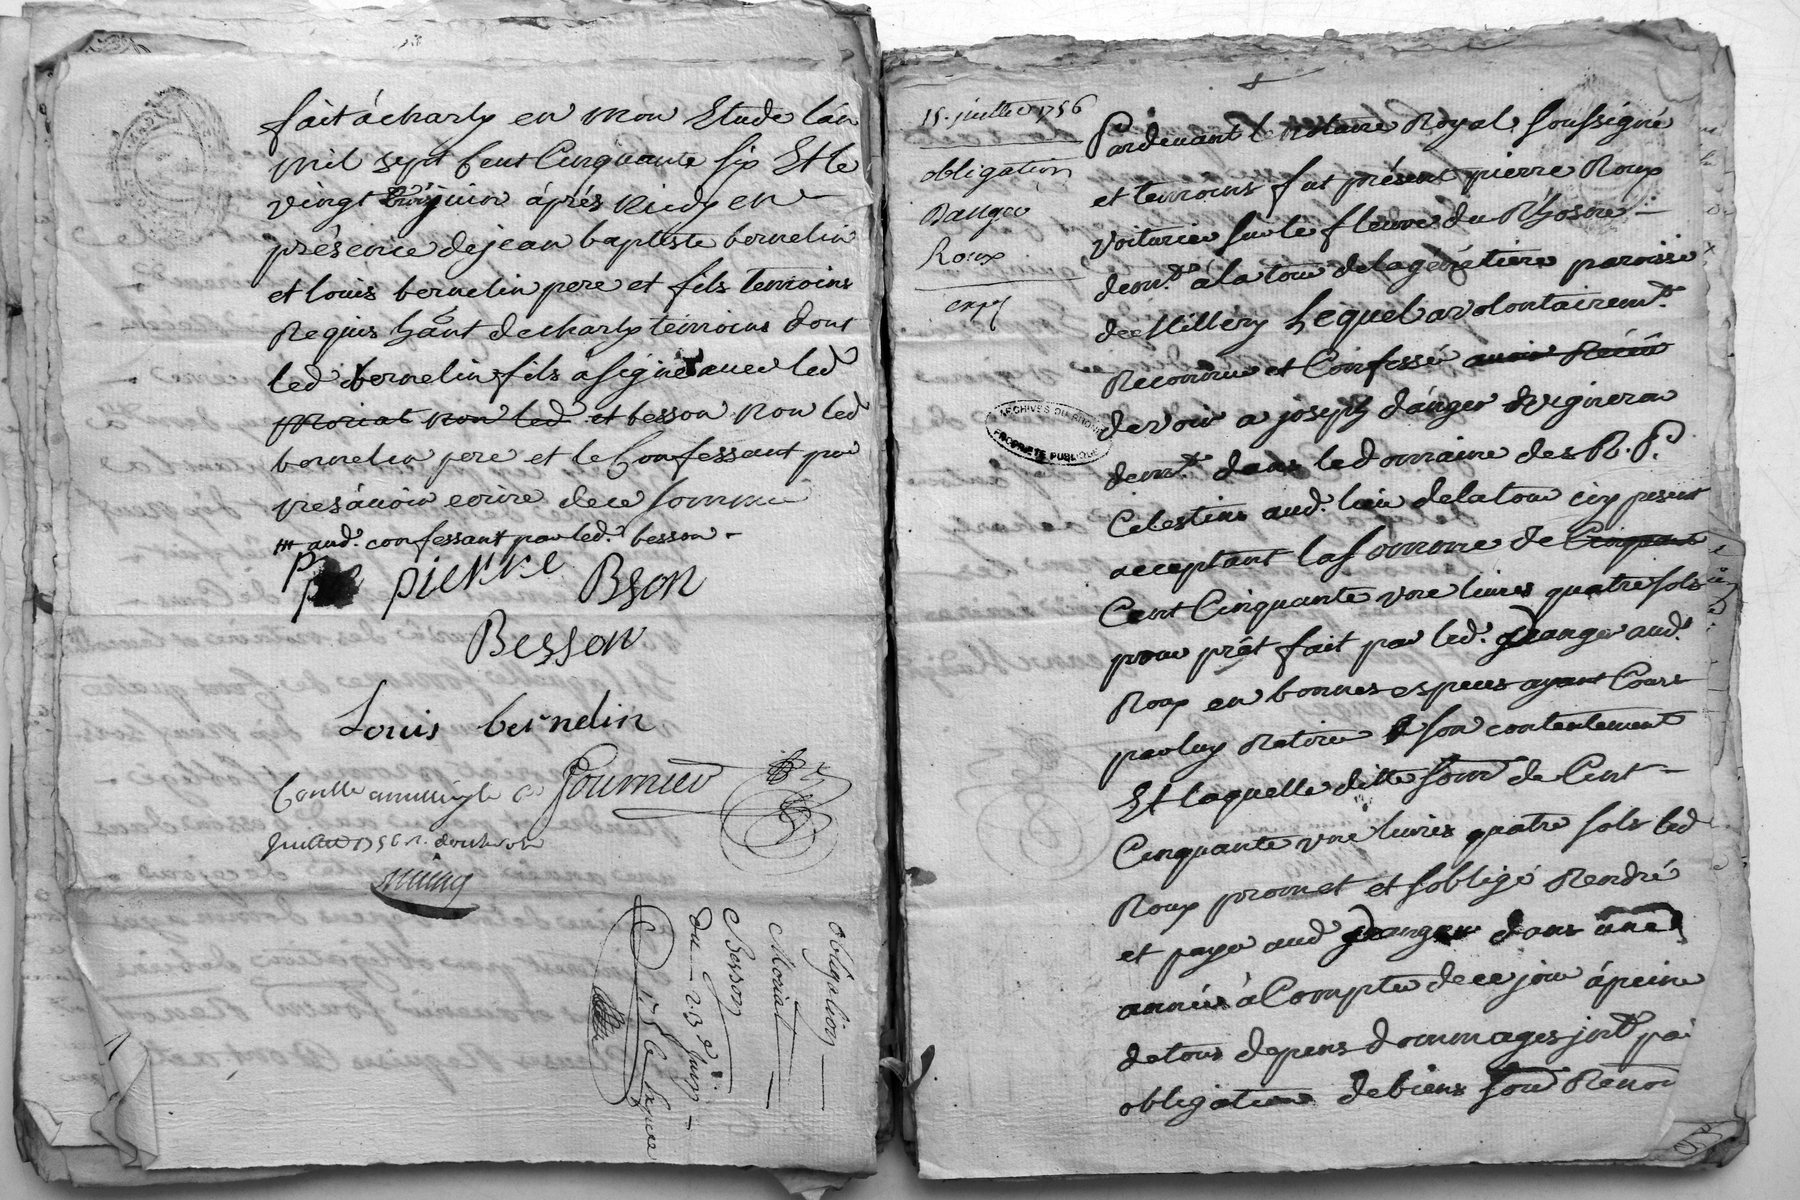 fait à charly en mon Etude l'an
mil sept Cent Cinquante six Et le
vingt trois juin áprés midy en
présence de jean baptiste bernelin
et louis bernelin pere et fils temoins
Requis hant de charly temoins dont
led bernelin fils a signé avec led
moriat non led et besson non led
bernelin pere et le Confessant pour
ne sávoir ecrire de ce somme
aud. confessant par led. besson
pierre Bson
Besson
Louis bernelin
Fournier
Controllé a millery le
Juillet 1756 R. douze sols
obligation
Moriat
Besson
du 23e Juin
1756
15. juillet 1756
obligation
Danger
Roux
exp
Pardevant le Notaire Royal soussigné
et temoins fut présent pierre Roux
voiturier sur le fleuve du Rhosne
demt. à la tour de la paroisse
de Millery Lequel a volontairemt.
Reconnu et Confessé avoir Receu
devoir a joseph dánger vigneron
demt. dans le domaine des R. P.
Celestins aud. lieu de la tour icy present
acceptant la somme de Cinquante
Cent Cinquante une livres quatre sols
pour prét fait par led. Danger aud.
Roux en bonnes especes ayant Cours
par luy Retirée a son contentement
Et laquelle ditte somme de Cent
Cinquante une livres quatre sols led
Roux promet et s'obligé Rendré
et payer aud Danger dans une
année à Compter de ce jour à peine
de tous depens dommages jntts. par
obligation de biens soum Renon
ARCHIVES DU RHONE
PROPRIETE PUBLIQUE